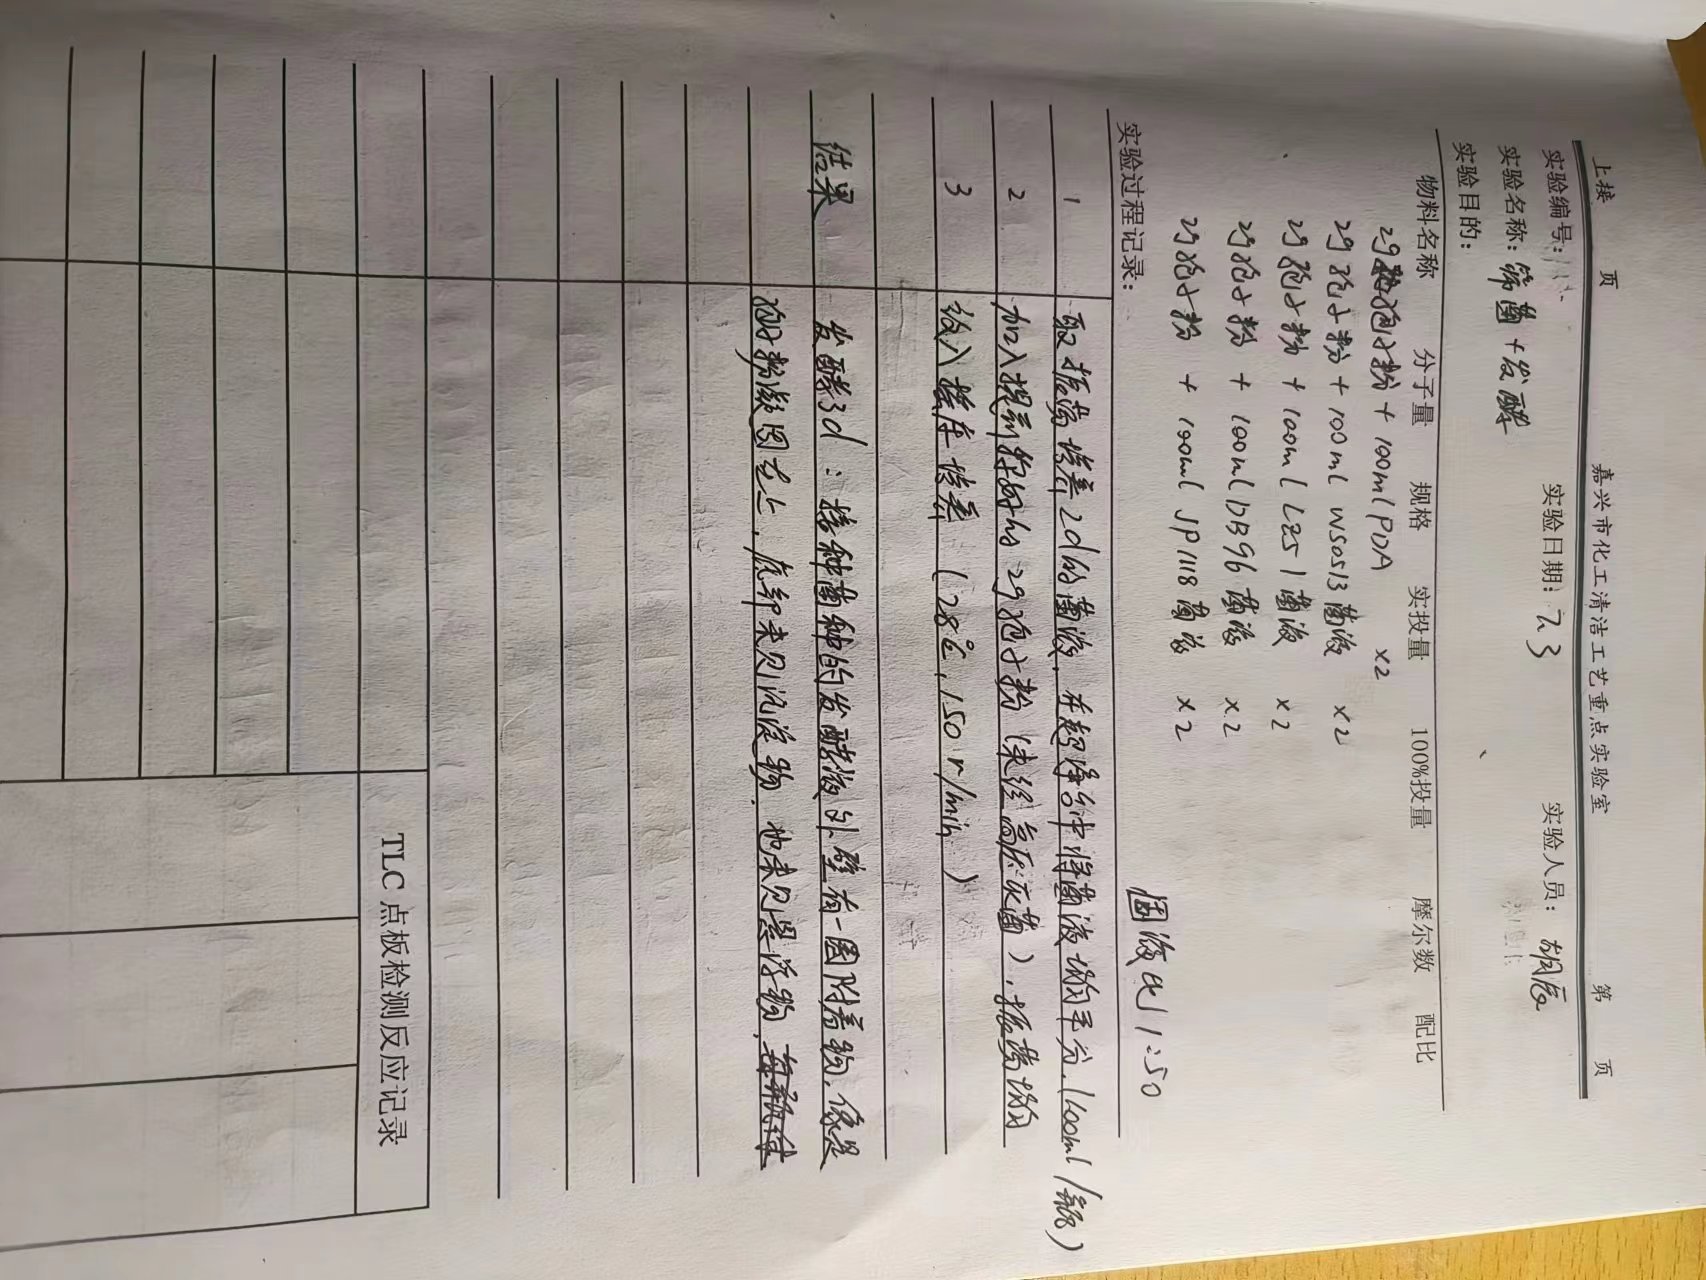 上接 页 嘉兴市化工清洁工艺重点实验室 第 页
实验编号: 实验日期: 7.3 实验人员: 胡
实验名称: 筛菌+发酵
实验目的:
物料名称 分子量 规格 实投量 100%投量 摩尔数 配比
2g 孢子粉 + 100ml PDA ×2
2g 孢子粉 + 100ml WS0513 菌液 ×2
2g 孢子粉 + 100ml LZ51 菌液 ×2
2g 孢子粉 + 100ml DB96 菌液 ×2
2g 孢子粉 + 100ml JP1118 菌液 ×2
固液比 1:50
实验过程记录:
1 取振荡培养2d的菌液,在超净台中将菌液均匀平分,(100ml/瓶)
2 加入提前称好的2g孢子粉(未经高压灭菌),振荡均匀
3 放入摇床培养(28℃,150r/min)
结果 发酵3d:接种菌种的发酵液外壁有一圈附着物,像是
孢子粉凝固起上,底部未见沉淀物,也未见悬浮物,
TLC点板检测反应记录